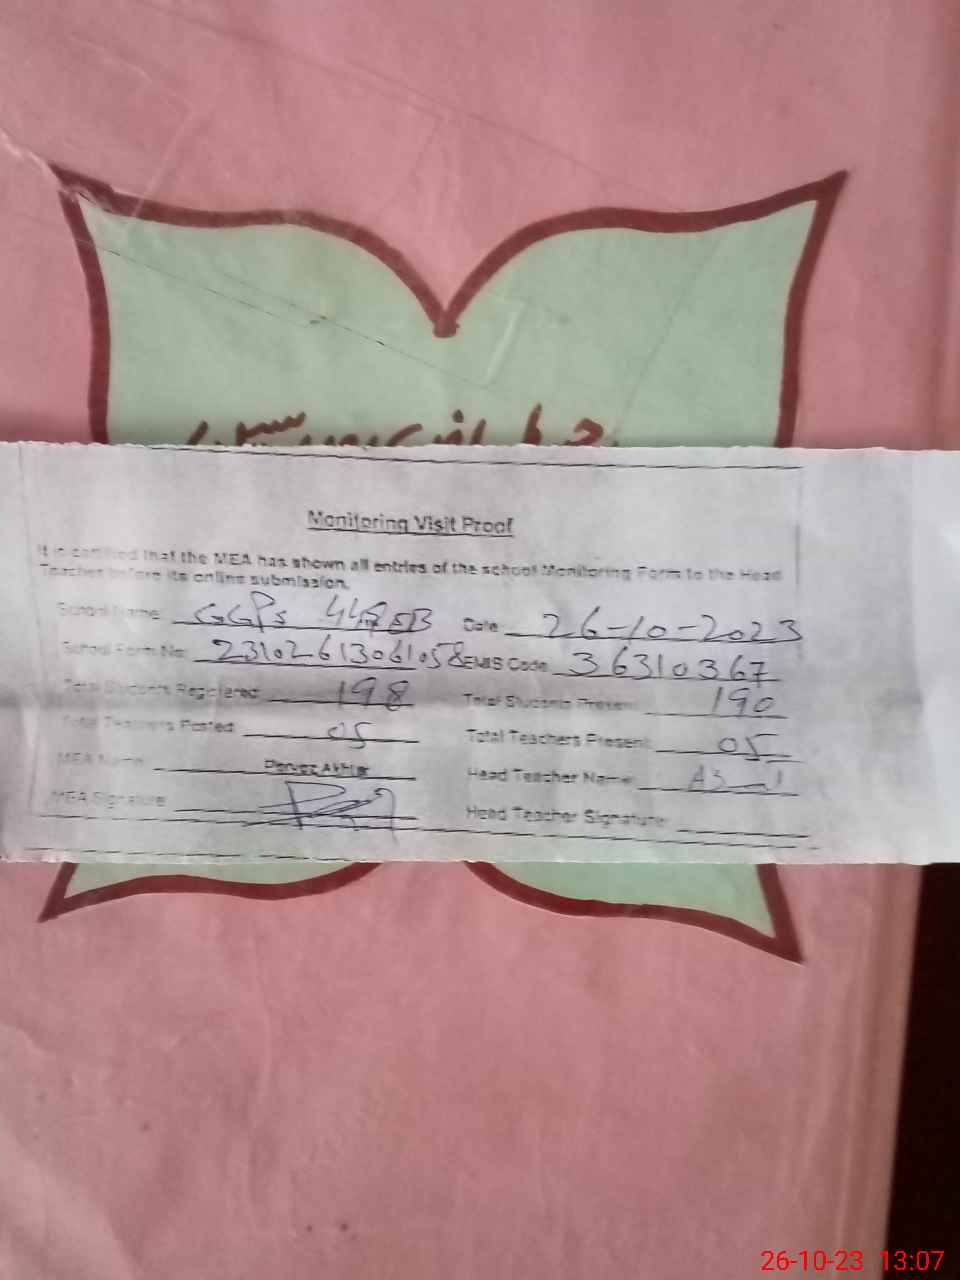 Monitoring Visit Proof
It is certified that the MEA has shown all entries of the school Monitoring Form to the Head
Teacher before its online submission.
School Name: GGPS Date: 26-10-2023
School Form No: 23102613061058 EMIS Code: 36310367
Total Students Registered: 198 Total Students Present: 190
Total Teachers Posted: 05 Total Teachers Present: 05
MEA Name: Pervez Akhtar Head Teacher Name:
MEA Signature Head Teacher Signature:
26-10-23 13:07